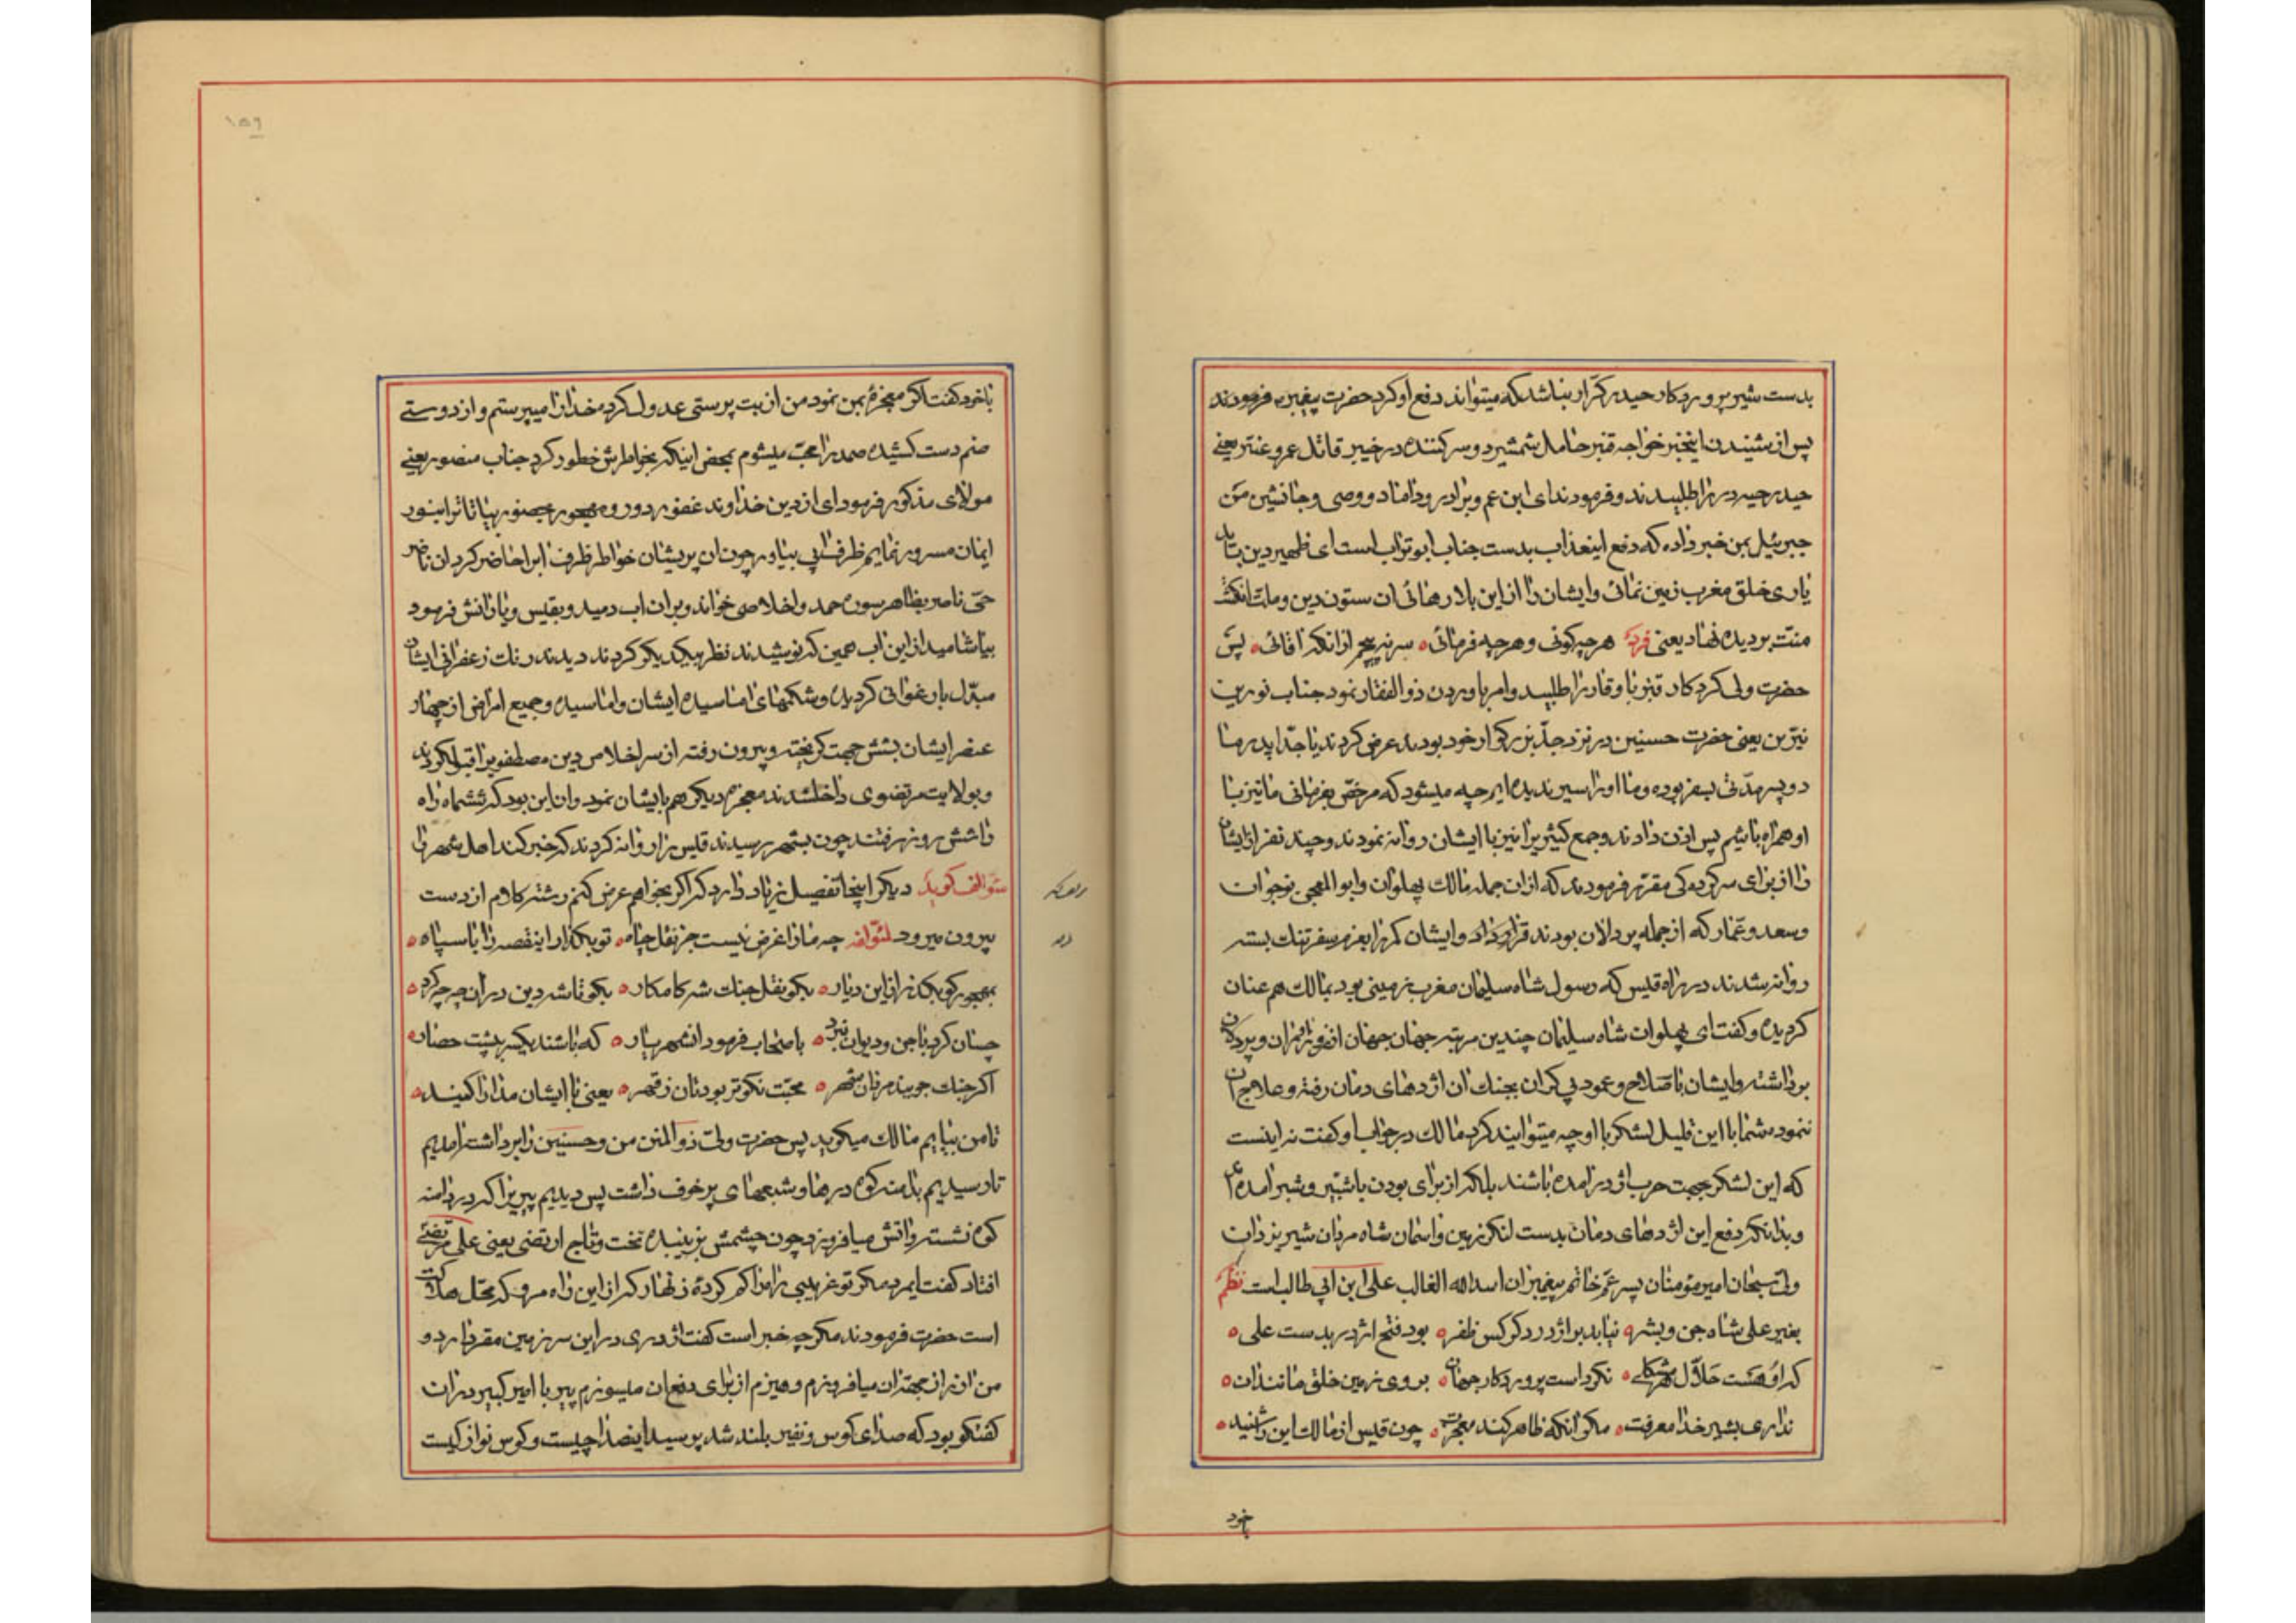 بدست شیر پروردکار حیدر کرّار نباشد که میتواند دفع او کرد حضرت پیغمبر فرمودند
پس از شنیدن اینخبر خواجه قنبر حامل شمشیر دو سر کننده در خیبر قاتل عمرو عنتر یعنے
حیدر حیه در را طلبیدند و فرمودند ای ابن عم و برادر و داماد و وصی و جانشین من
جبرئیل بمن خبر داده که دفع اینعذاب بدست جناب ابوتراب است ای ظهیر دین بتا
یاری خلق مغرب زمین نمائی و ایشان را از این بلا رهائی ان ستون دین و ملت انکشت
منّت بر دیده نهاد یعنی فرد هر چه کوئی و هر چه فرمائی سر نپیچم از انکه اقائی پس
حضرت ولی کردکار قنبر با وقار را طلبید و امر باوردن ذوالفقار نمود جناب نورین
نیّرین یعنی حضرت حسنین در نزد جدّ بزرکوار خود بودند عرض کردند یا جدّا پدر ما
دو پسر مدّتی بسفر بوده و ما او را سیر ندیده ایم چه میشود که مرخّص بفرمائی ما نیز با
او همراه باشیم پس اذن دادند و جمع کثیری را نیز با ایشان روانه نمودند و چند نفر از ایشان
را از برای سرکردکی مقرّر فرمودند که از ان جمله مالک پهلوان و ابوالمعجن نوجوان
و سعد و عمّار که از جمله پردلان بودند قرار داد و ایشان کمر را بعزم سفر تنک بسته
روانه شدند در راه قلیس که رسول شاه سلیمان مغرب زمینی بود بمالک هم عنان
کردیده و کفت ای پهلوان شاه سلیمان چندین مرتبه جهان جهان از
برداشته و ایشان با سلاح و عمود بی کران بجنک ان اژدهای دمان رفته و علاج ان
ننمود شما با این قلیل لشکر با او چه میتوانید کرد مالک در جواب او کفت نه اینست
که این لشکر جهت حرب اژدر امده باشند بلکه از برای بودن با شبیّر و شبر امده اند
و بدانکه دفع این اژدهای دمان بدست لنکر زمین و اسمان شاه مردان شیر یزدان
ولی سبحان امیر مؤمنان پسر عمّ خاتم پیغمبران اسدالله الغالب علی ابن ابی طالب است نظم
بغیر علی شاه جن و بشر نیابد بر اژدر دکر کس ظفر بود فتح اژدر بدست علی
که او هست حلّال هر مشکلے نکرد است پروردکار جهان بروی زمین خلق مانند ان
نداری بشیر خدا معرفت مکر انکه ظاهر کند معجزت چون قلیس از مالک این را شنید
باخود
۱۵۶
باخود کفت اکر معجزه بمن نمود من از بت پرستی عدول کرده خدا را میپرستم و از دوستے
صنم دست کشیده صمد را محبّ میشوم بمحض اینکه بخاطرش خطور کرد جناب منصور یعنے
مولای مذکور فرمود ای از دین خداوند غفور دور و مهجور بحضور بیا تا تو را بنور
ایمان مسرور نمایم ظرف ابی بیاور چون ان پریشان خواطر ظرف اب را حاضر کرد ان ناصر
حیّ ناصر بظاهر سوره حمد و اخلاص خواند و بر ان اب دمید و بقلیس و یارانش فرمود
بیاشامید از این اب همین که نوشیدند نظر بیکدیکر کردند دیدند رنک زعفرانی ایشان
مبدّل بارغوانی کردیده و شکمهای اماسیده ایشان وا ماسیده و جمیع امراض از چهار
عنصر ایشان بشش جهت کریخته و بیرون رفته از سر اخلاص دین مصطفوی را قبول کردند
و بولایت مرتضوی داخلشدند معجزه دیکر هم بایشان نمود و ان این بود که ششماه راه
را شش روزه رفتند چون بشهر رسیدند قلیس را روانه کردند که خبر کند اهل شهر را
مؤلف کوید دیکر اینجا تفصیل زیاد دارد که اکر بخواهم عرض کنم رشته کلام از دست
بیرون میرود لمؤلفه چه ما را غرض نیست جز نقل چاه تو بکذار اینقصه را با سپاه
بهجور کو بکذر از این دیار بکو نقل جنک شه کامکار بکو تا شه دین در ان چه چه کرد
چسان کرد با جن و دیوان نبرد باصحاب فرمود انشهریار که باشند یکسر به پشت حصار
اکر جنک جویند مردان شهر محبّت نکوتر بودتان ز قهر یعنی با ایشان مدارا کنید
تا من بیایم مالک میکوید پس حضرت ولیّ ذوالمنن من و حسنین را برداشته امدیم
تا رسیدیم بدامنه کوه درها و شعبهای پر خوف داشت پس دیدیم پیری را که در دامنه
کوه نشسته و اتش میافروزد چون چشمش بزیبنده تخت و تاج ارتضی یعنی علی مرتضے
افتاد کفت ایمرد مکر تو غریبی راه را کم کردهٔ زنهار که از این راه مرو که محلّ هلاکت
است حضرت فرمودند مکر چه خبر است کفت اژدری در این سرزمین مقر دارد و
من اتش از جهة ان میافروزم و هیزم از برای دفع ان میسوزم پیر با امیر کبیر در ان
کفتکو بود که صدای کوس و نفیر بلند شد پرسید اینصدا چیست و کوس نواز کیست